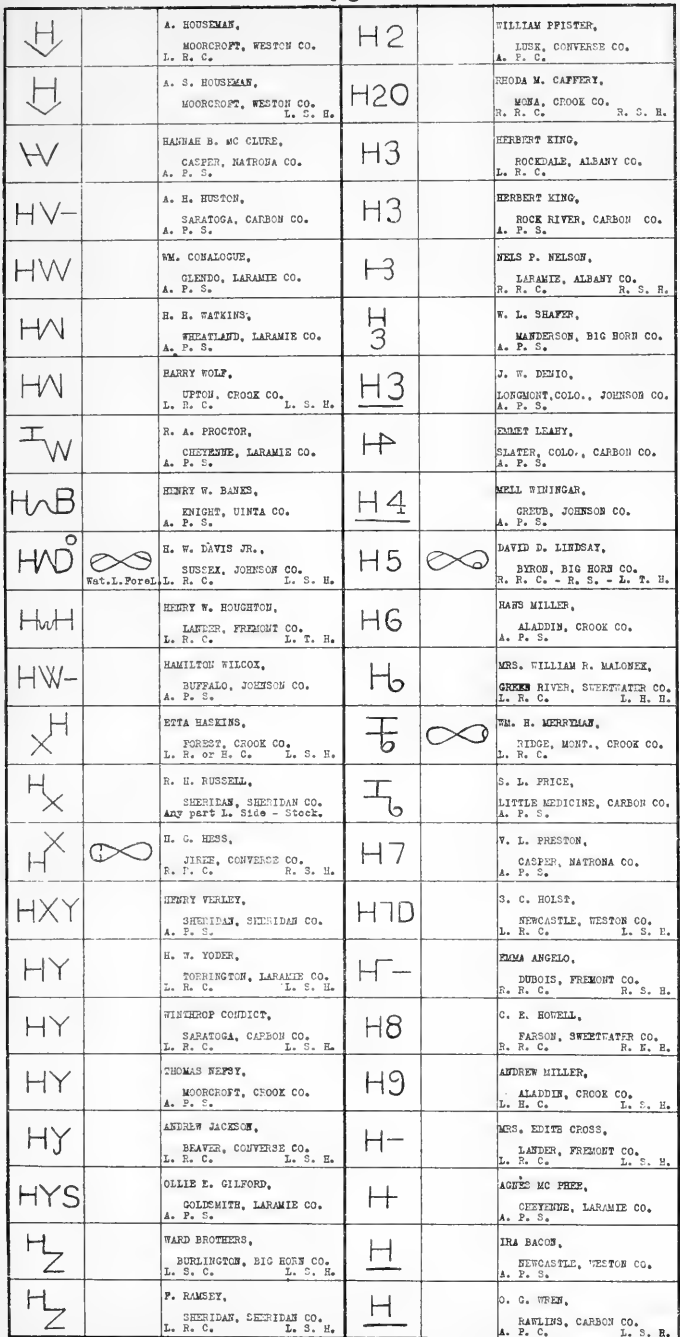 A. HOUSEMAN,
MOORCROFT, WESTON CO.
L. R. C.
A. S. HOUSEMAN,
MOORCROFT, WESTON CO.
L. S. H.
HANNAH B. MC CLURE,
CASPER, NATRONA CO.
A. P. S.
HV-
A. H. HUSTON,
SARATOGA, CARBON CO.
A. P. S.
HW
WM. CONALOGUE,
GLENDO, LARAMIE CO.
A. P. S.
H. H. WATKINS,
WHEATLAND, LARAMIE CO.
A. P. S.
HARRY WOLF,
UPTON, CROOK CO.
L. R. C. L. S. H.
R. A. PROCTOR,
CHEYENNE, LARAMIE CO.
A. P. S.
HENRY W. BANKS,
KNIGHT, UINTA CO.
A. P. S.
Wat.L.ForeL.
H. W. DAVIS JR.,
SUSSEX, JOHNSON CO.
L. R. C. L. S. H.
HwH
HENRY W. HOUGHTON,
LANDER, FREMONT CO.
L. R. C. L. T. H.
HW-
HAMILTON WILCOX,
BUFFALO, JOHNSON CO.
A. P. S.
H
X
ETTA HASKINS,
FOREST, CROOK CO.
L. R. or H. C. L. S. H.
H
X
R. H. RUSSELL,
SHERIDAN, SHERIDAN CO.
Any part L. Side - Stock.
X
H
H. G. HESS,
JIREH, CONVERSE CO.
R. S. H.
HXY
HENRY VERLEY,
SHERIDAN, SHERIDAN CO.
A. P. S.
HY
H. W. YODER,
TORRINGTON, LARAMIE CO.
L. R. C. L. S. H.
HY
WINTHROP CONDICT,
SARATOGA, CARBON CO.
L. R. C. L. S. H.
HY
THOMAS NEFSY,
MOORCROFT, CROOK CO.
A. P. S.
HY
ANDREW JACKSON,
BEAVER, CONVERSE CO.
L. R. C. L. S. H.
HYS
OLLIE E. GILFORD,
GOLDSMITH, LARAMIE CO.
A. P. S.
H
Z
WARD BROTHERS,
BURLINGTON, BIG HORN CO.
L. S. C. L. S. H.
H
Z
P. RAMSEY,
SHERIDAN, SHERIDAN CO.
L. R. C. L. S. H.
H2
WILLIAM PFISTER,
LUSK, CONVERSE CO.
A. P. C.
H2O
RHODA M. CAFFERY,
MONA, CROOK CO.
R. R. C. R. S. H.
H3
HERBERT KING,
ROCKDALE, ALBANY CO.
L. R. C.
H3
HERBERT KING,
ROCK RIVER, CARBON CO.
A. P. S.
NELS P. NELSON,
LARAMIE, ALBANY CO.
R. R. C. R. S. H.
H
3
W. L. SHAFER,
MANDERSON, BIG HORN CO.
A. P. S.
H3
J. W. DENIO,
LONGMONT,COLO., JOHNSON CO.
A. P. S.
EMMET LEAHY,
SLATER, COLO., CARBON CO.
A. P. S.
H4
MELL WININGAR,
GREUB, JOHNSON CO.
A. P. S.
H5
DAVID D. LINDSAY,
BYRON, BIG HORN CO.
R. R. C. - R. S. - L. T. H.
H6
HANS MILLER,
ALADDIN, CROOK CO.
A. P. S.
MRS. WILLIAM R. MALONEK,
GREEN RIVER, SWEETWATER CO.
L. R. C. L. H. H.
WM. H. MERRYMAN,
RIDGE, MONT., CROOK CO.
L. R. C.
S. L. PRICE,
LITTLE MEDICINE, CARBON CO.
A. P. S.
H7
V. L. PRESTON,
CASPER, NATRONA CO.
A. P. S.
H7D
S. C. HOLST,
NEWCASTLE, WESTON CO.
L. R. C. L. S. H.
EMMA ANGELO,
DUBOIS, FREMONT CO.
R. R. C. R. S. H.
H8
C. E. HOWELL,
FARSON, SWEETWATER CO.
R. R. C.
H9
ANDREW MILLER,
ALADDIN, CROOK CO.
L. H. C. L. S. H.
H-
MRS. EDITH CROSS,
LANDER, FREMONT CO.
L. R. C. L. S. H.
AGNES MC PHEE,
CHEYENNE, LARAMIE CO.
A. P. S.
H
IRA BACON,
NEWCASTLE, WESTON CO.
A. P. S.
H
O. G. WREN,
RAWLINS, CARBON CO.
A. P. C. L. S. H.